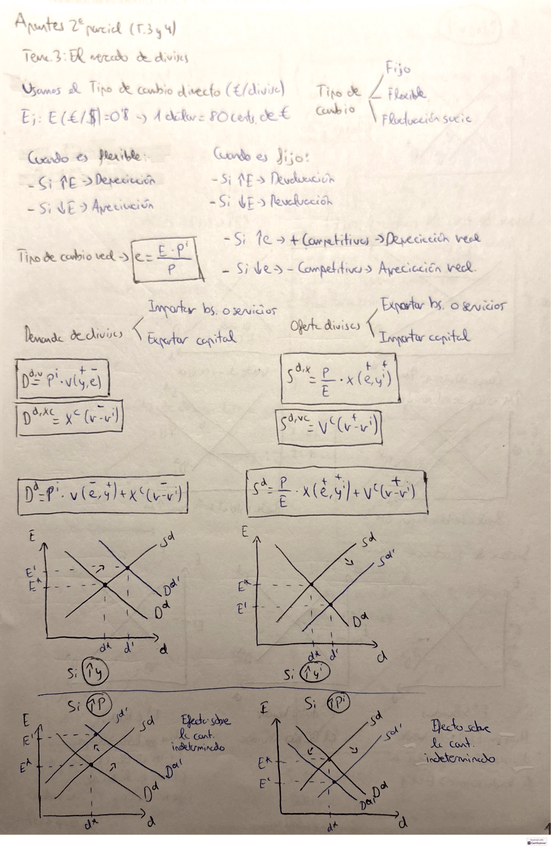 Apuntes 2º parcial (T.3 y 4)
Tema 3: El mercado de divisas
Usamos el Tipo de cambio directo (€/divisa)
Ej: E(€/$)=0'8 → 1 dólar = 80 cent. de €
Tipo de cambio
Fijo
Flexible
Fluctuación sucia
Cuando es flexible:
- Si ↑E → Depreciación
- Si ↓E → Apreciación
Cuando es fijo:
- Si ↑E → Devaluación
- Si ↓E → Revaluación
Tipo de cambio real → e = E · P* / P
- Si ↑e → + Competitivos → Depreciación real
- Si ↓e → - Competitivos → Apreciación real.
Demanda de divisas
Importar bs. o servicios
Exportar capital
Oferta divisas
Exportar bs. o servicios
Importar capital
+ -
D^d,v = P* · v(y,e)
-
D^d,xc = X^c(r-r*)
+ +
S^d,x = P/E · x(e,y*)
+
S^d,vc = V^c(r-r*)
- + -
D^d = P* · v(e,y) + X^c(r-r*)
+ + +
S^d = P/E · x(e,y*) + V^c(r-r*)
E
S^d
E'
E*
D^d'
D^d
d* d' d
Si ↑y
E
S^d
S^d'
E*
E'
D^d
d* d' d
Si ↑y*
Si ↑P
E
S^d'
S^d
E'
E*
D^d'
D^d
d* d
Efecto sobre
la cant.
indeterminado
Si ↑P*
E
S^d
S^d'
E*
E'
D^d' D^d
d* d
Efecto sobre
la cant.
indeterminado
1